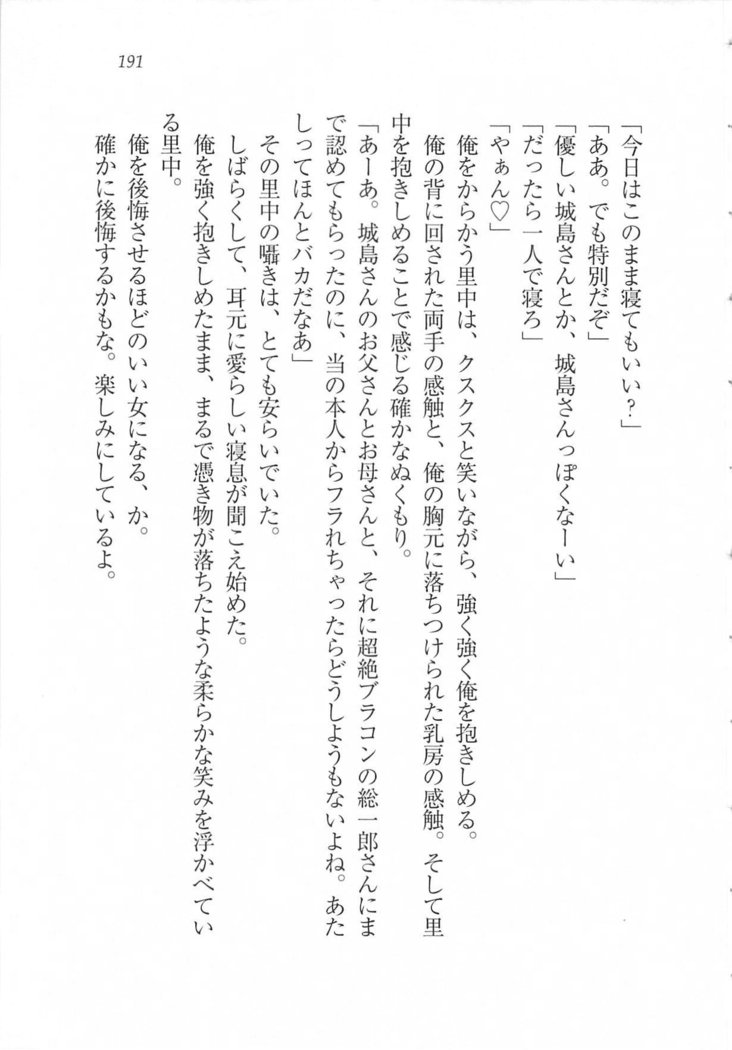 191
「今日はこのまま寝てもいい？」
「ああ。でも特別だぞ」
「優しい城島さんとか、城島さんっぽくなーい」
「だったら一人で寝ろ」
「やぁん♡」
俺をからかう里中は、クスクスと笑いながら、強く強く俺を抱きしめる。
俺の背に回された両手の感触と、俺の胸元に落ちつけられた乳房の感触。そして里
中を抱きしめることで感じる確かなぬくもり。
「あーあ。城島さんのお父さんとお母さんと、それに超絶ブラコンの総一郎さんにま
で認めてもらったのに、当の本人からフラれちゃったらどうしようもないよね。あた
しってほんとバカだなあ」
その里中の囁きは、とても安らいでいた。
しばらくして、耳元に愛らしい寝息が聞こえ始めた。
俺を強く抱きしめたまま、まるで憑き物が落ちたような柔らかな笑みを浮かべてい
る里中。
俺を後悔させるほどのいい女になる、か。
確かに後悔するかもな。楽しみにしているよ。